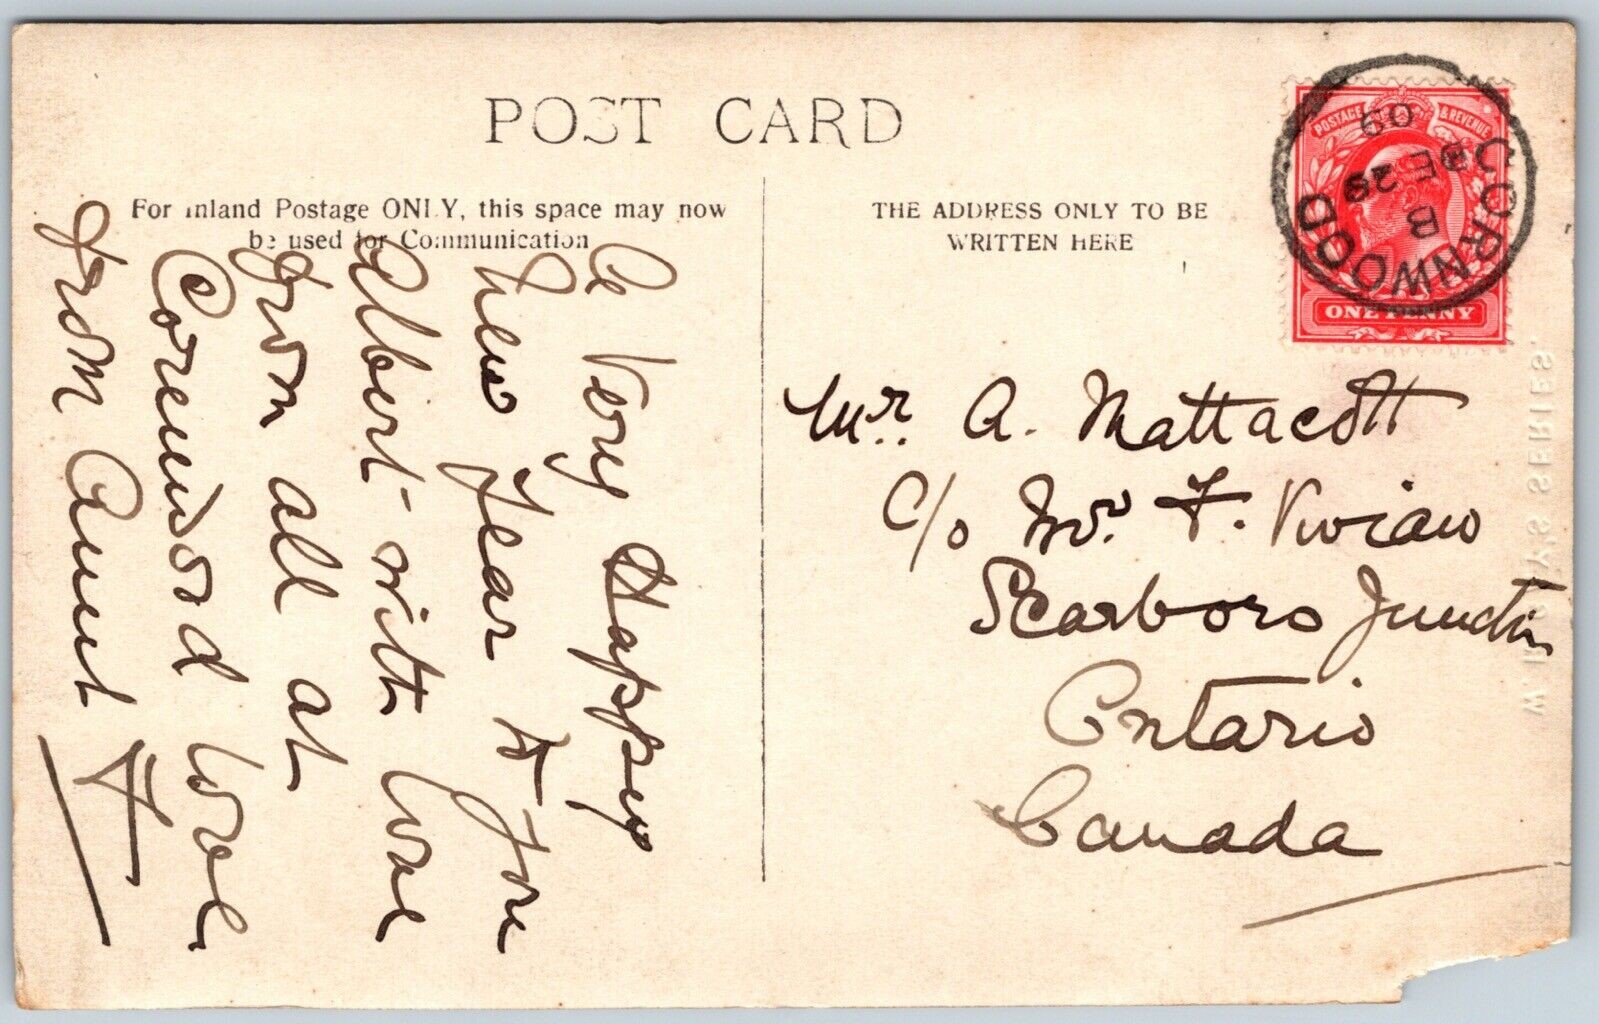 POST CARD
For Inland Postage ONLY, this space may now
be used for Communication
THE ADDRESS ONLY TO BE
WRITTEN HERE
POSTAGE & REVENUE
ONE PENNY
CORNWOOD
B
DE 29
09
Mr. A. Mattacott
c/o Mr. F. Vivian
Scarboro Junction
Ontario
Canada
A Very Happy
New Year to you
Albert with love
from all at
Cornwood love
from Aunt H
SERIES.